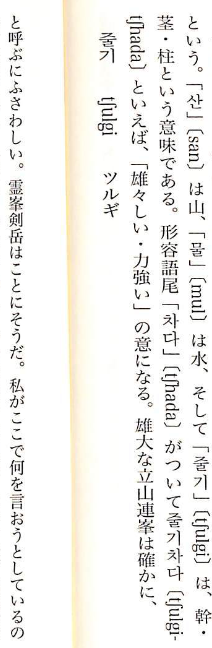 という。「산」〔san〕は山、「물」〔mul〕は水、そして「줄기」〔tʃulgi〕は、幹・
茎・柱という意味である。形容語尾「차다」〔tʃhada〕がついて줄기차다〔tʃulgi-
tʃhada〕といえば、「雄々しい・力強い」の意になる。雄大な立山連峯は確かに、
줄기　tʃulgi　ツルギ
と呼ぶにふさわしい。霊峯剣岳はことにそうだ。私がここで何を言おうとしているの